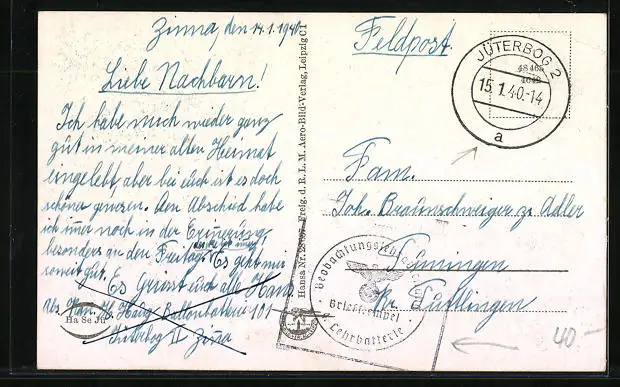 Zinna, den 14.1.1940
Liebe Nachbarn!
Ich habe mich wieder ganz
gut in meiner alten Heimat
eingelebt, aber bei euch ist es doch
schöner gewesen. Den Abschied habe
ich immer noch in der Erinnerung,
besonders an den Freitag. Es geht mir
soweit gut. Es Grüsst euch alle Hans
H. Haug Ballonbatterie 101
Jüterbog II Zinna
Ha Se Jü
Hansa Nr. Freig. d. R. L. M. Aero-Bild-Verlag, Leipzig C1
Feldpost
JÜTERBOG 2
15.1.40.-14
a
48 465
Fam.
Joh. Braunschweiger z. Adler
Tuningen
Kr. Tuttlingen
Briefstempel
Lehrbatterie
40.-